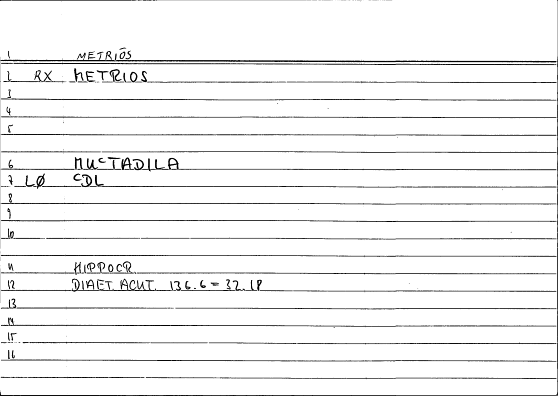 1 METRIŌS
2 RX METRIOS
3
4
5
6 MUᶜTADILA
7 LØ ᶜDL
8
9
10
11 HIPPOCR.
12 DIAET. ACUT. 136.6 = 37.18
13
14
15
16